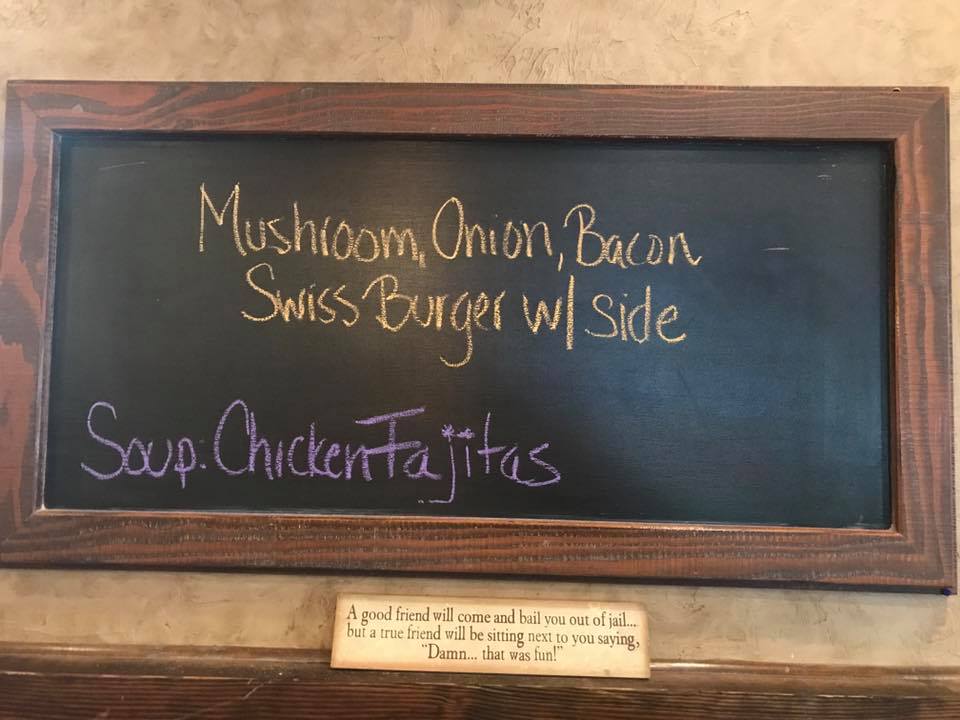 Mushroom, Onion, Bacon
Swiss Burger w/ side
Soup: Chicken Fajitas
A good friend will come and bail you out of jail...
but a true friend will be sitting next to you saying,
"Damn... that was fun!"